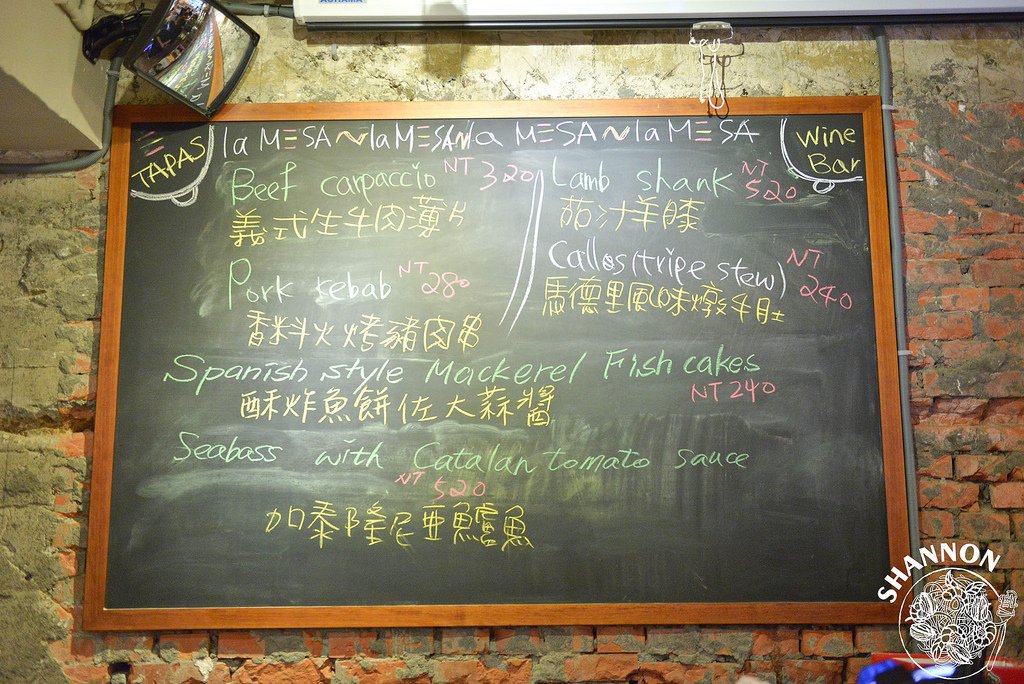 TAPAS
la MESA~la MESA~la MESA~la MESA
Wine
Bar
Beef carpaccio NT 320
義式生牛肉薄片
Lamb shank NT 520
茄汁羊膝
Pork kebab NT 280
香料火烤豬肉串
Callos (tripe stew) NT 240
馬德里風味燉牛肚
Spanish style Mackerel Fish cakes
NT 240
酥炸魚餅佐大蒜醬
Seabass with Catalan tomato sauce
NT 520
加泰隆尼亞鱸魚
SHANNON